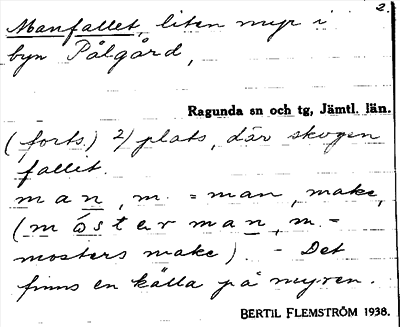 2.
Manfallet, liten myr i
byn Pålgård,
Ragunda sn och tg, Jämtl. län.
(forts.) 2) plats, där skogen
fallit.
man, m. = man, make,
(mós̀tərman, m. =
mosters make). - Det
finns en källa på myren.
BERTIL FLEMSTRÖM 1938.